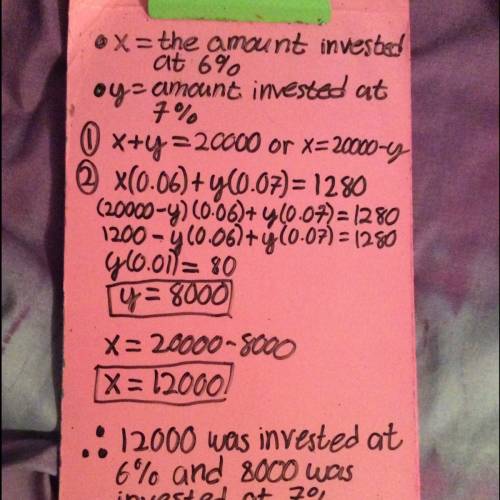 • x = the amount invested
at 6%
• y = amount invested at
7%
① x+y = 20000 or x = 20000-y
② x(0.06)+y(0.07) = 1280
(20000-y)(0.06)+y(0.07) = 1280
1200-y(0.06)+y(0.07) = 1280
y(0.01) = 80
y = 8000
x = 20000-8000
x = 12000
∴ 12000 was invested at
6% and 8000 was
invested at 7%